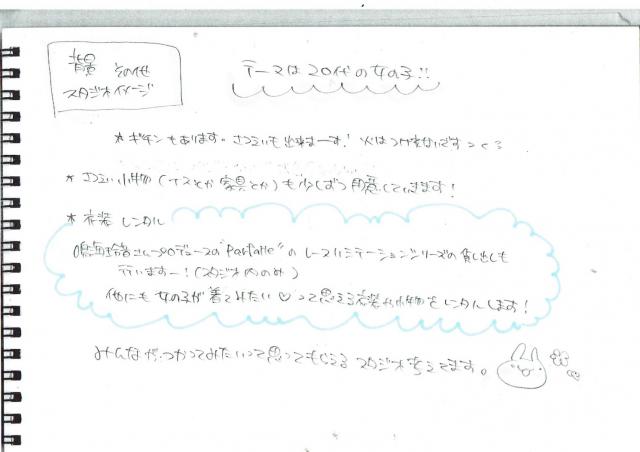 背景 その他
スタジオイメージ
テーマは20代の女の子!!
*キチンもあります。さつえいも出来まーす!火はつけれないです
*さつえい小物(イスとか家具とか)も少しずつ用意していきます!
*衣装レンタル
さんプロデュースの"Parfaite"のレースリミテーションシリーズの貸し出しも
行いますー!(スタジオ内のみ)
他にも女の子が着てみたい♡って思える衣装や小物をレンタルします!
みんながつかってみたいって思ってもらえるスタジオ考えてます。